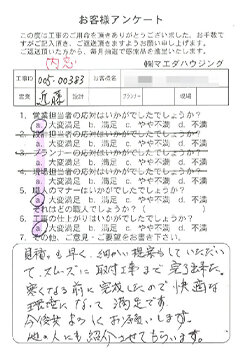 お客様アンケート
この度は工事のご用命を賜りありがとうございました。お手数で
すがご記入頂き、ご返送頂きますようお願い申し上げます。
ご返送頂いた方から、毎月抽選で粗品を進呈いたします。
内窓
㈱マエダハウジング
工事ID 005-00383 お客様名
営業 近藤 設計 プランナー 現場
1. 営業担当者の対応はいかがでしたでしょうか?
a. 大変満足 b. 満足 c. やや不満 d. 不満
a. 大変満足 b. 満足 c. やや不満 d. 不満
3. プランナーの対応はいかがでしたでしょうか?
a. 大変満足 b. 満足 c. やや不満 d. 不満
4. 現場担当者の対応はいかがでしたでしょうか?
a. 大変満足 b. 満足 c. やや不満 d. 不満
5. 職人のマナーはいかがでしたでしょうか?
a. 大変満足 b. 満足 c. やや不満 d. 不満
それはどの職人でしょうか? ( )
6. 工事の仕上がりはいかがでしたでしょうか?
a. 大変満足 b. 満足 c. やや不満 d. 不満
7. その他、ご意見・ご要望をお書き下さい。
見積も早く、細かい提案をしていただい
て、スムーズに取付工事まで完了出来た。
寒くなる前に完成したので快適な
環境になって満足です。
今後共よろしくお願いします。
他の人にも紹介させてもらいます。